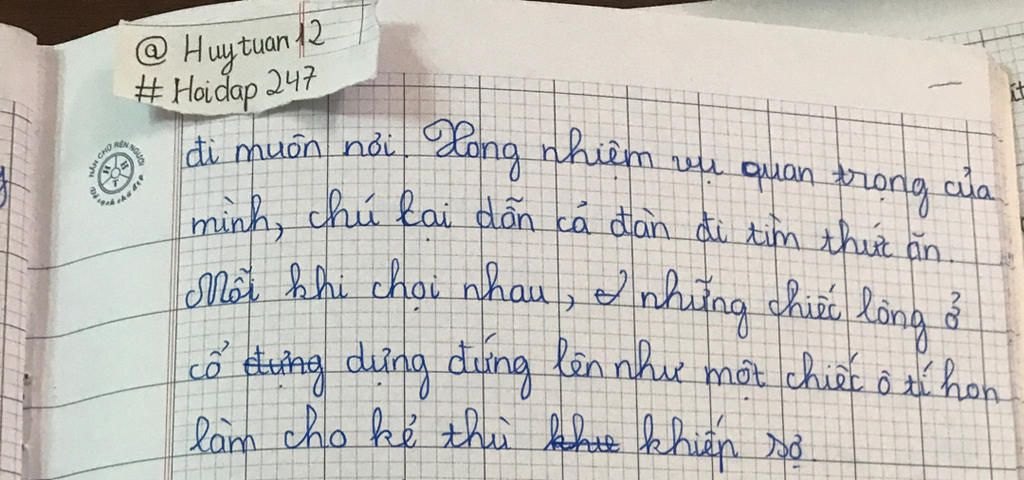 @ Huytuan12
# Hoidap 247
đi muôn nơi. Xong nhiệm vụ quan trọng của
mình, chú lại dẫn cả đàn đi tìm thức ăn.
Mỗi khi chọi nhau, những chiếc lông ở
cổ dựng đứng lên như một chiếc ô tí hon
làm cho kẻ thù khiếp sợ.